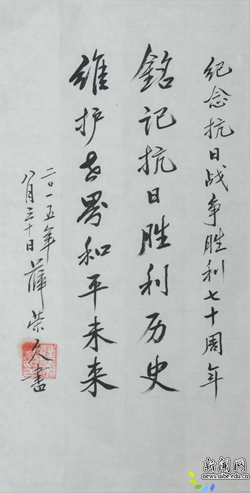 纪念抗日战争胜利七十周年
銘记抗日胜利历史
维护世界和平未来
二〇一五年
八月三十日薛荣久书
新闻网
news.uibe.edu.cn